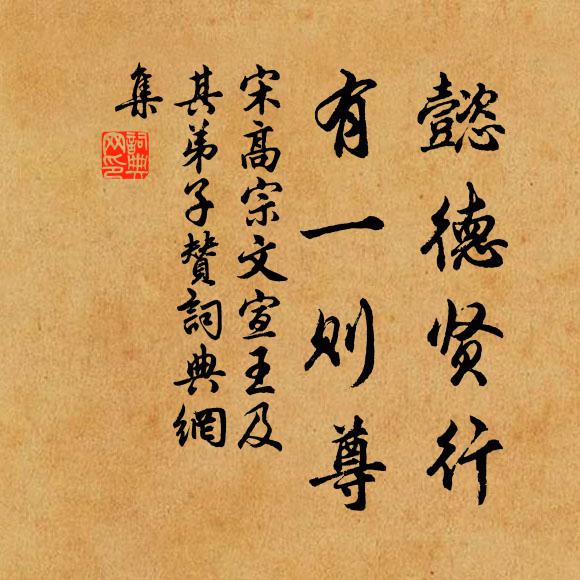 懿德贤行
有一则尊
宋高宗文宣王及
其弟子赞詞典網
集
詞典
网印